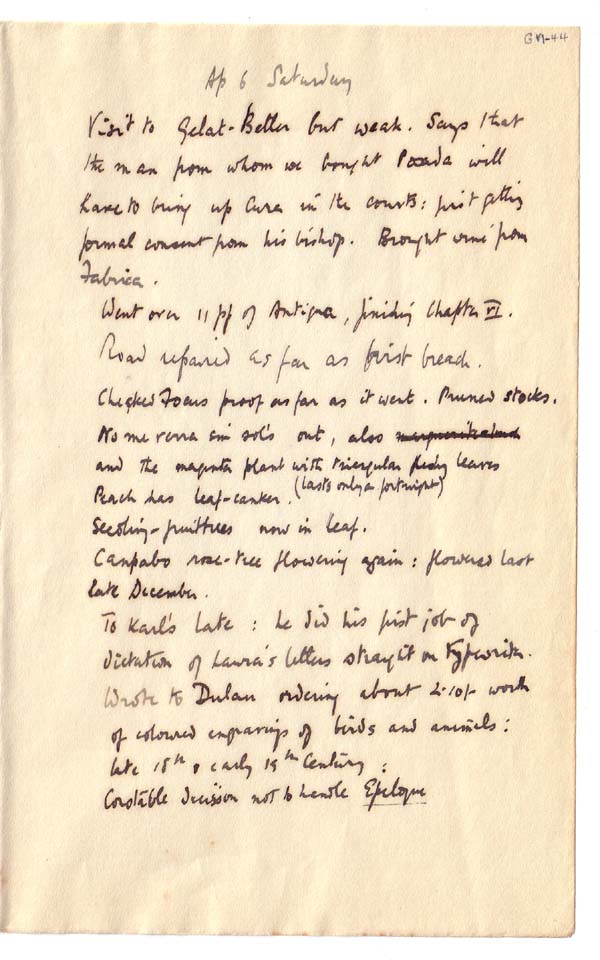 GM-44
Ap 6 Saturday
Visit to Gelat - Better but weak. Says that
the man from whom we bought Posada will
have to bring up Cura in the courts: just getting
formal consent from his bishop. Brought wine from
Fabrica.
Went over 11 pp of Antigua, finishing Chapter VI.
Road repaired as far as first breach.
Checked Focus proof as far as it went. Pruned stocks.
No me verra sin sol's out, also
and the magenta plant with triangular fleshy leaves
(lasts only a fortnight)
Peach has leaf-canker.
Seedling-fruittrees now in leaf.
Canpabo rose-tree flowering again: flowered last
late December.
To Karl's late: he did his first job of
dictation of Laura's letters straight on typewriter.
Wrote to Dulau ordering about £2.10/- worth
of coloured engravings of birds and animals:
late 18th & early 19th Century:
Constable decision not to handle Epilogue